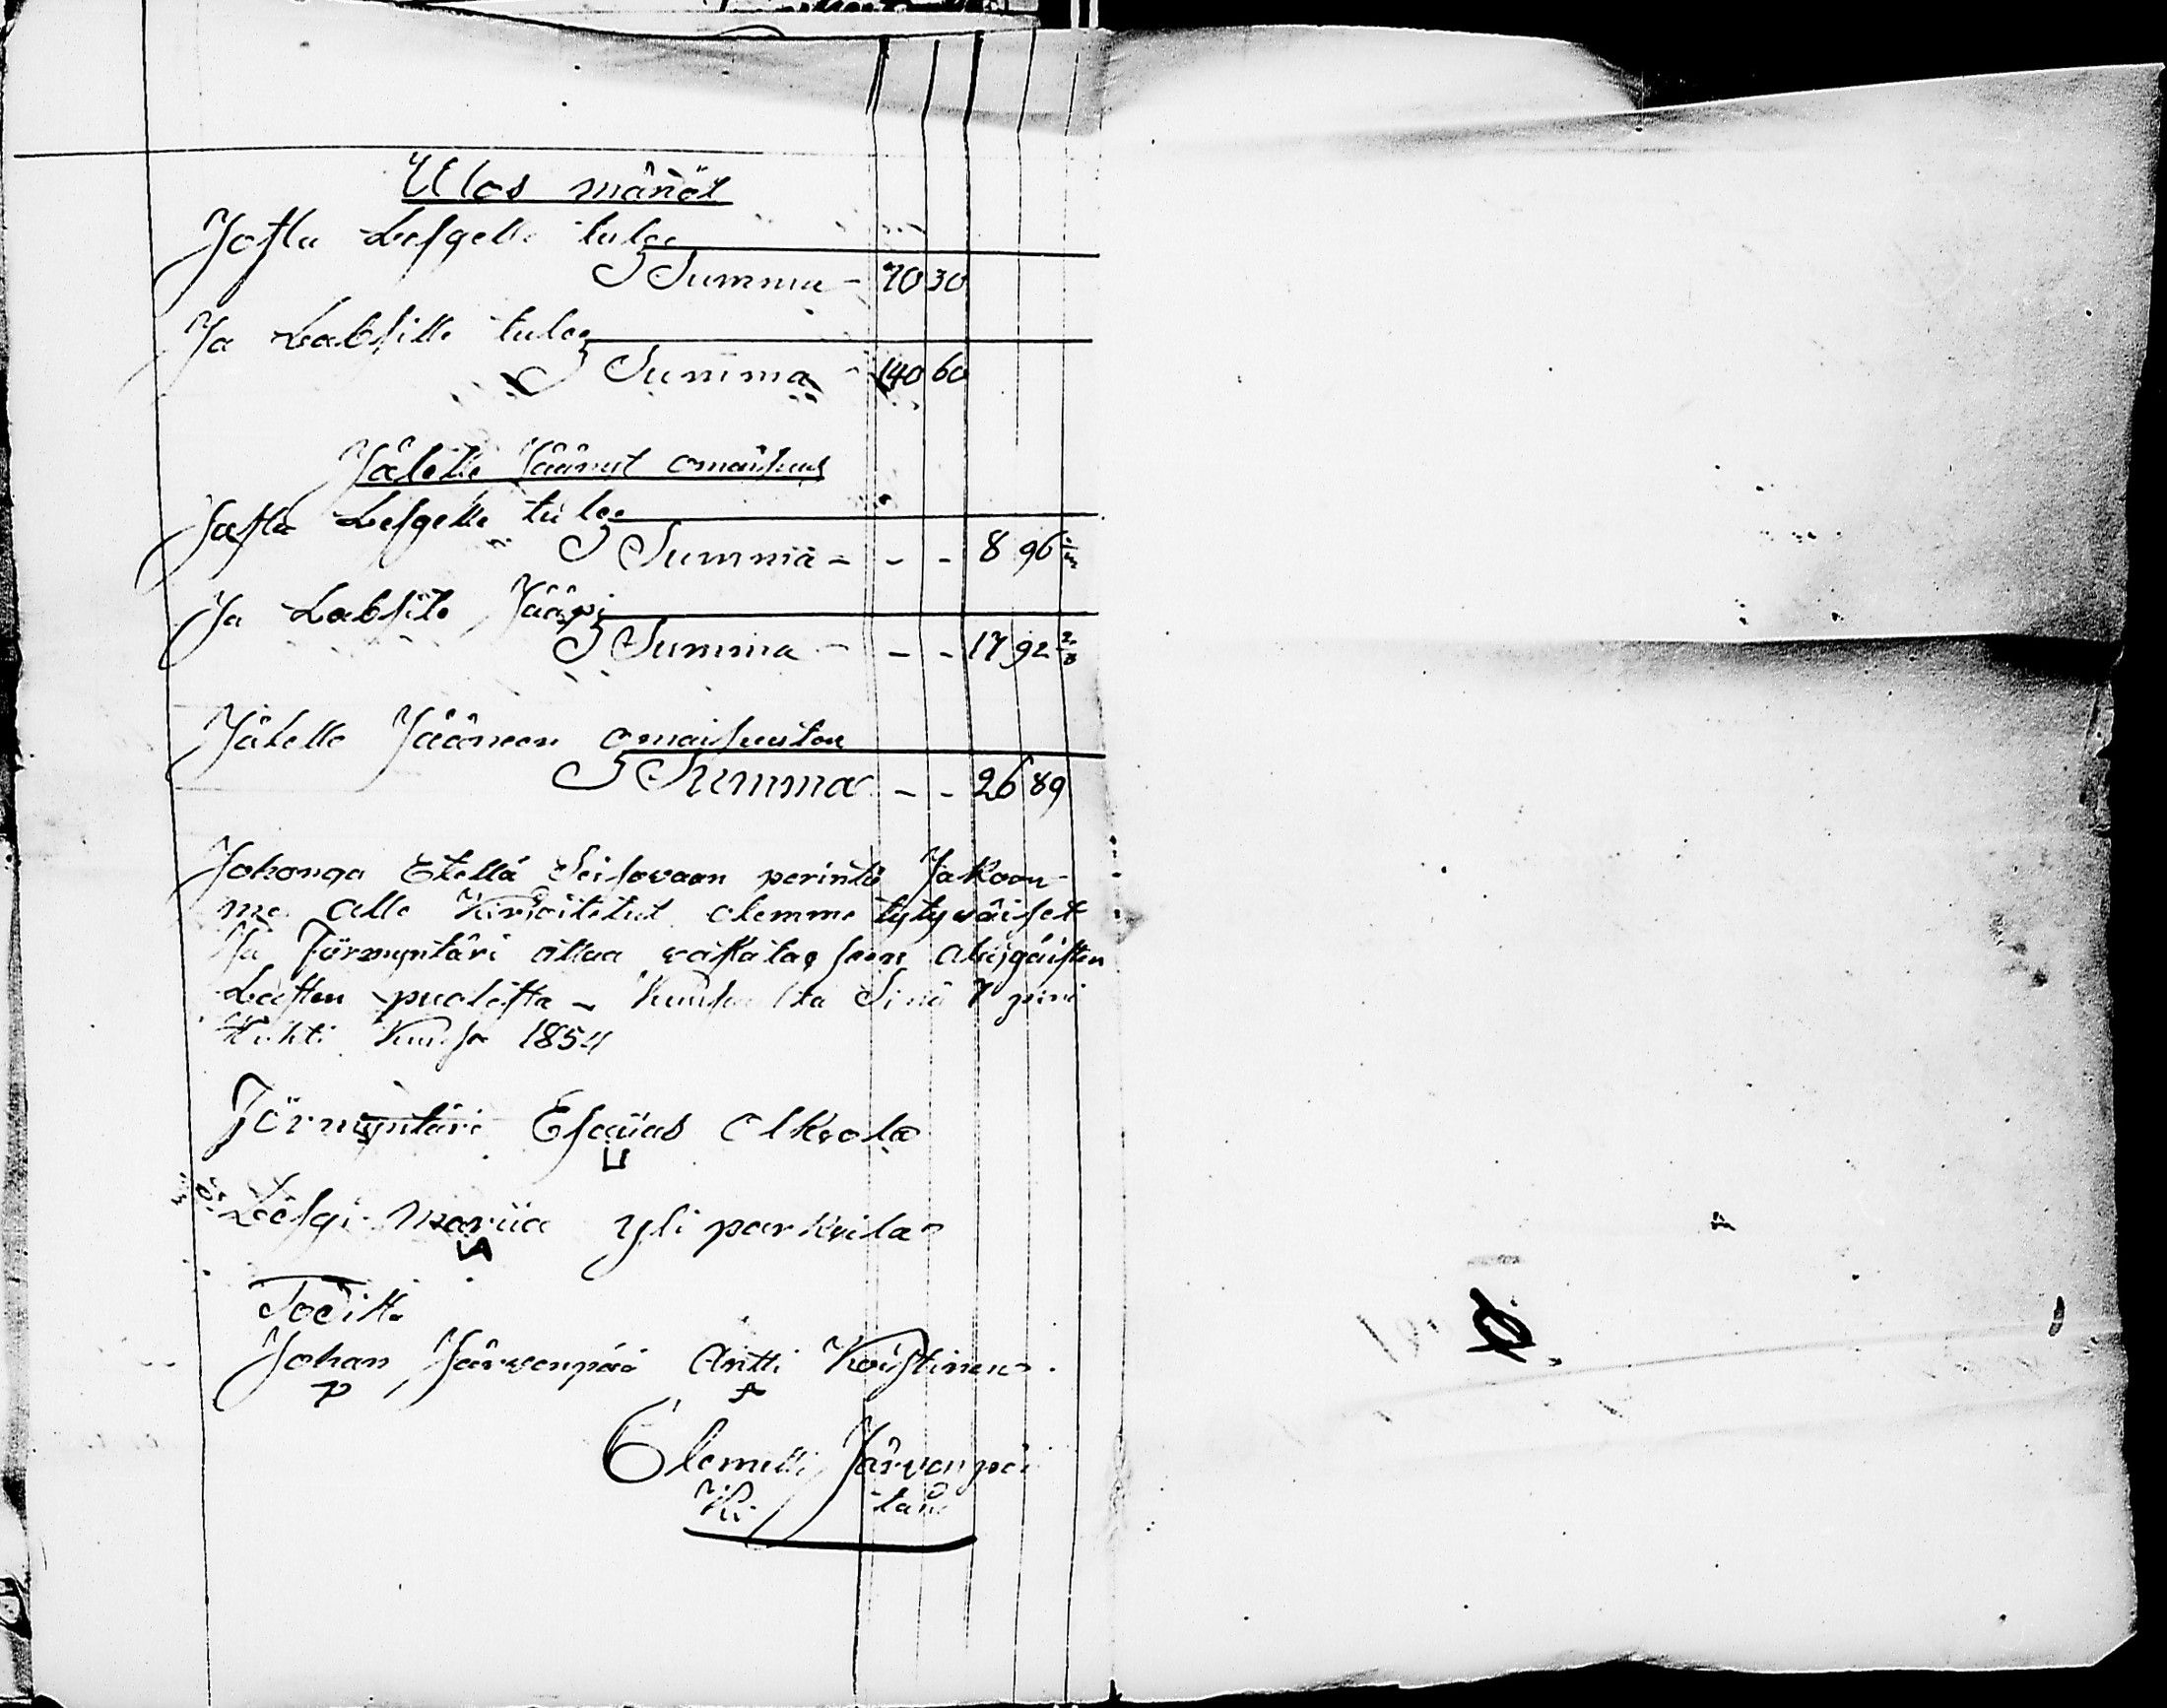 Ulos mänöt
Josta Lesgelle tulee
Summa - 70 30
Ja Labsille tulee
Summa - 140 60
Jälelle Jäänut omaisuus
Josta Lesgelle tulee
Summa - - - 8 96 1/3
Ja Labsile Jääpi
Summa - - - 17 92 2/3
Jälelle Jääneen omaisuuten
Summa - - 26 89
Johonga Etellä Seisovaan perintö Jakoon
me alle Kirjoitetut olemme tytyväiset
Ja Förmyntäri ottaa vastatagseen alaigäisten
Lasten puolesta - Sinä 7 pnä
Huhti Kuusa 1854
Förmyntäri Esaias Alkvola
Leesgi Mariia yli parkkila
Todista
Johan Järvenpää Antti Koistinen
Clemetti Järvenpää